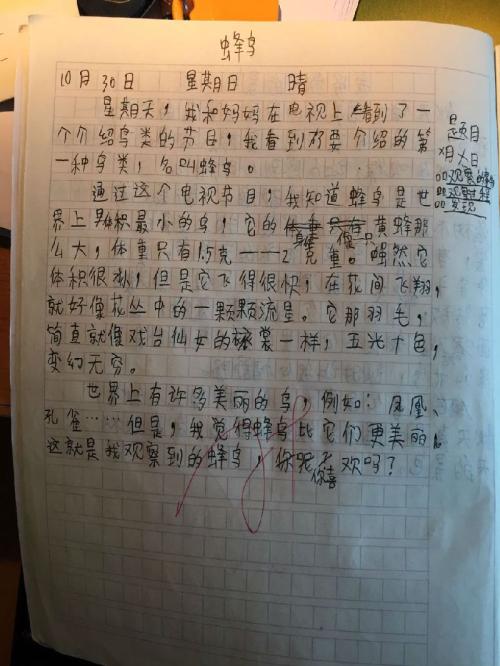 蜂鸟
10月30日 星期日 晴
星期天，我和妈妈在电视上看到了一
个介绍鸟类的节目，我看到了要介绍的第
一种鸟类，名叫蜂鸟。
通过这个电视节目，我知道蜂鸟是世
界上体积最小的鸟，它的身子仅只有黄蜂那
么大，体重只有1.5克——2克重。虽然它
体积很小，但是它飞得很快，在花间飞翔，
就好像花丛中的一颗颗流星。它那羽毛，
简直就像戏台仙女的裳一样，五光十色，
变幻无穷。
世界上有许多美丽的鸟，例如：凤凰、
孔雀……但是，我觉得蜂鸟比它们更美丽。
这就是我观察到的蜂鸟，你喜欢吗？
题目
x月x日